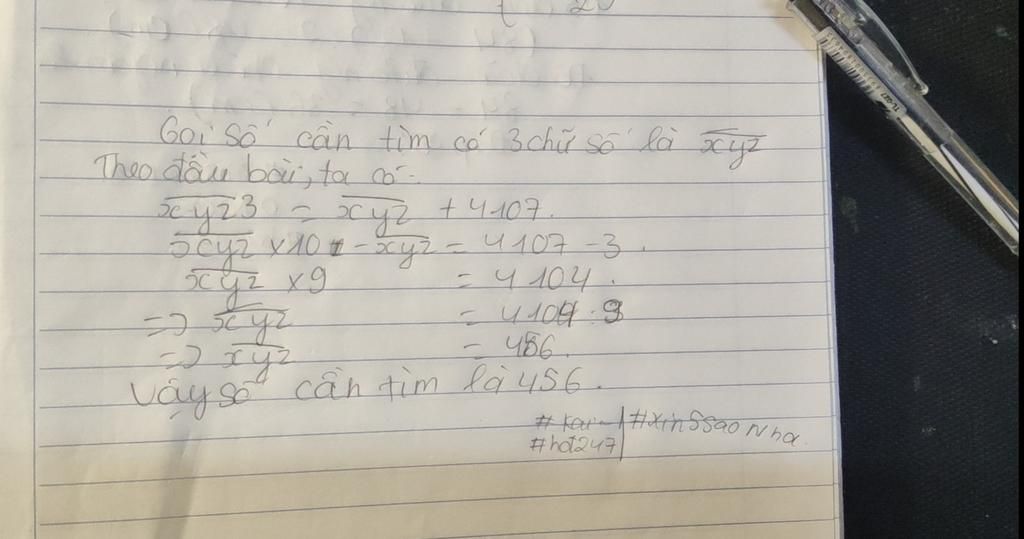 Gọi số cần tìm có 3 chữ số là xyz
Theo đầu bài, ta có:
xyz3 = xyz + 4107.
xyz ×10 - xyz = 4107 - 3.
xyz × 9 = 4104.
=> xyz = 4104 : 9
=> xyz = 456.
Vậy số cần tìm là 456.
#xin5saoNha.
#hd247